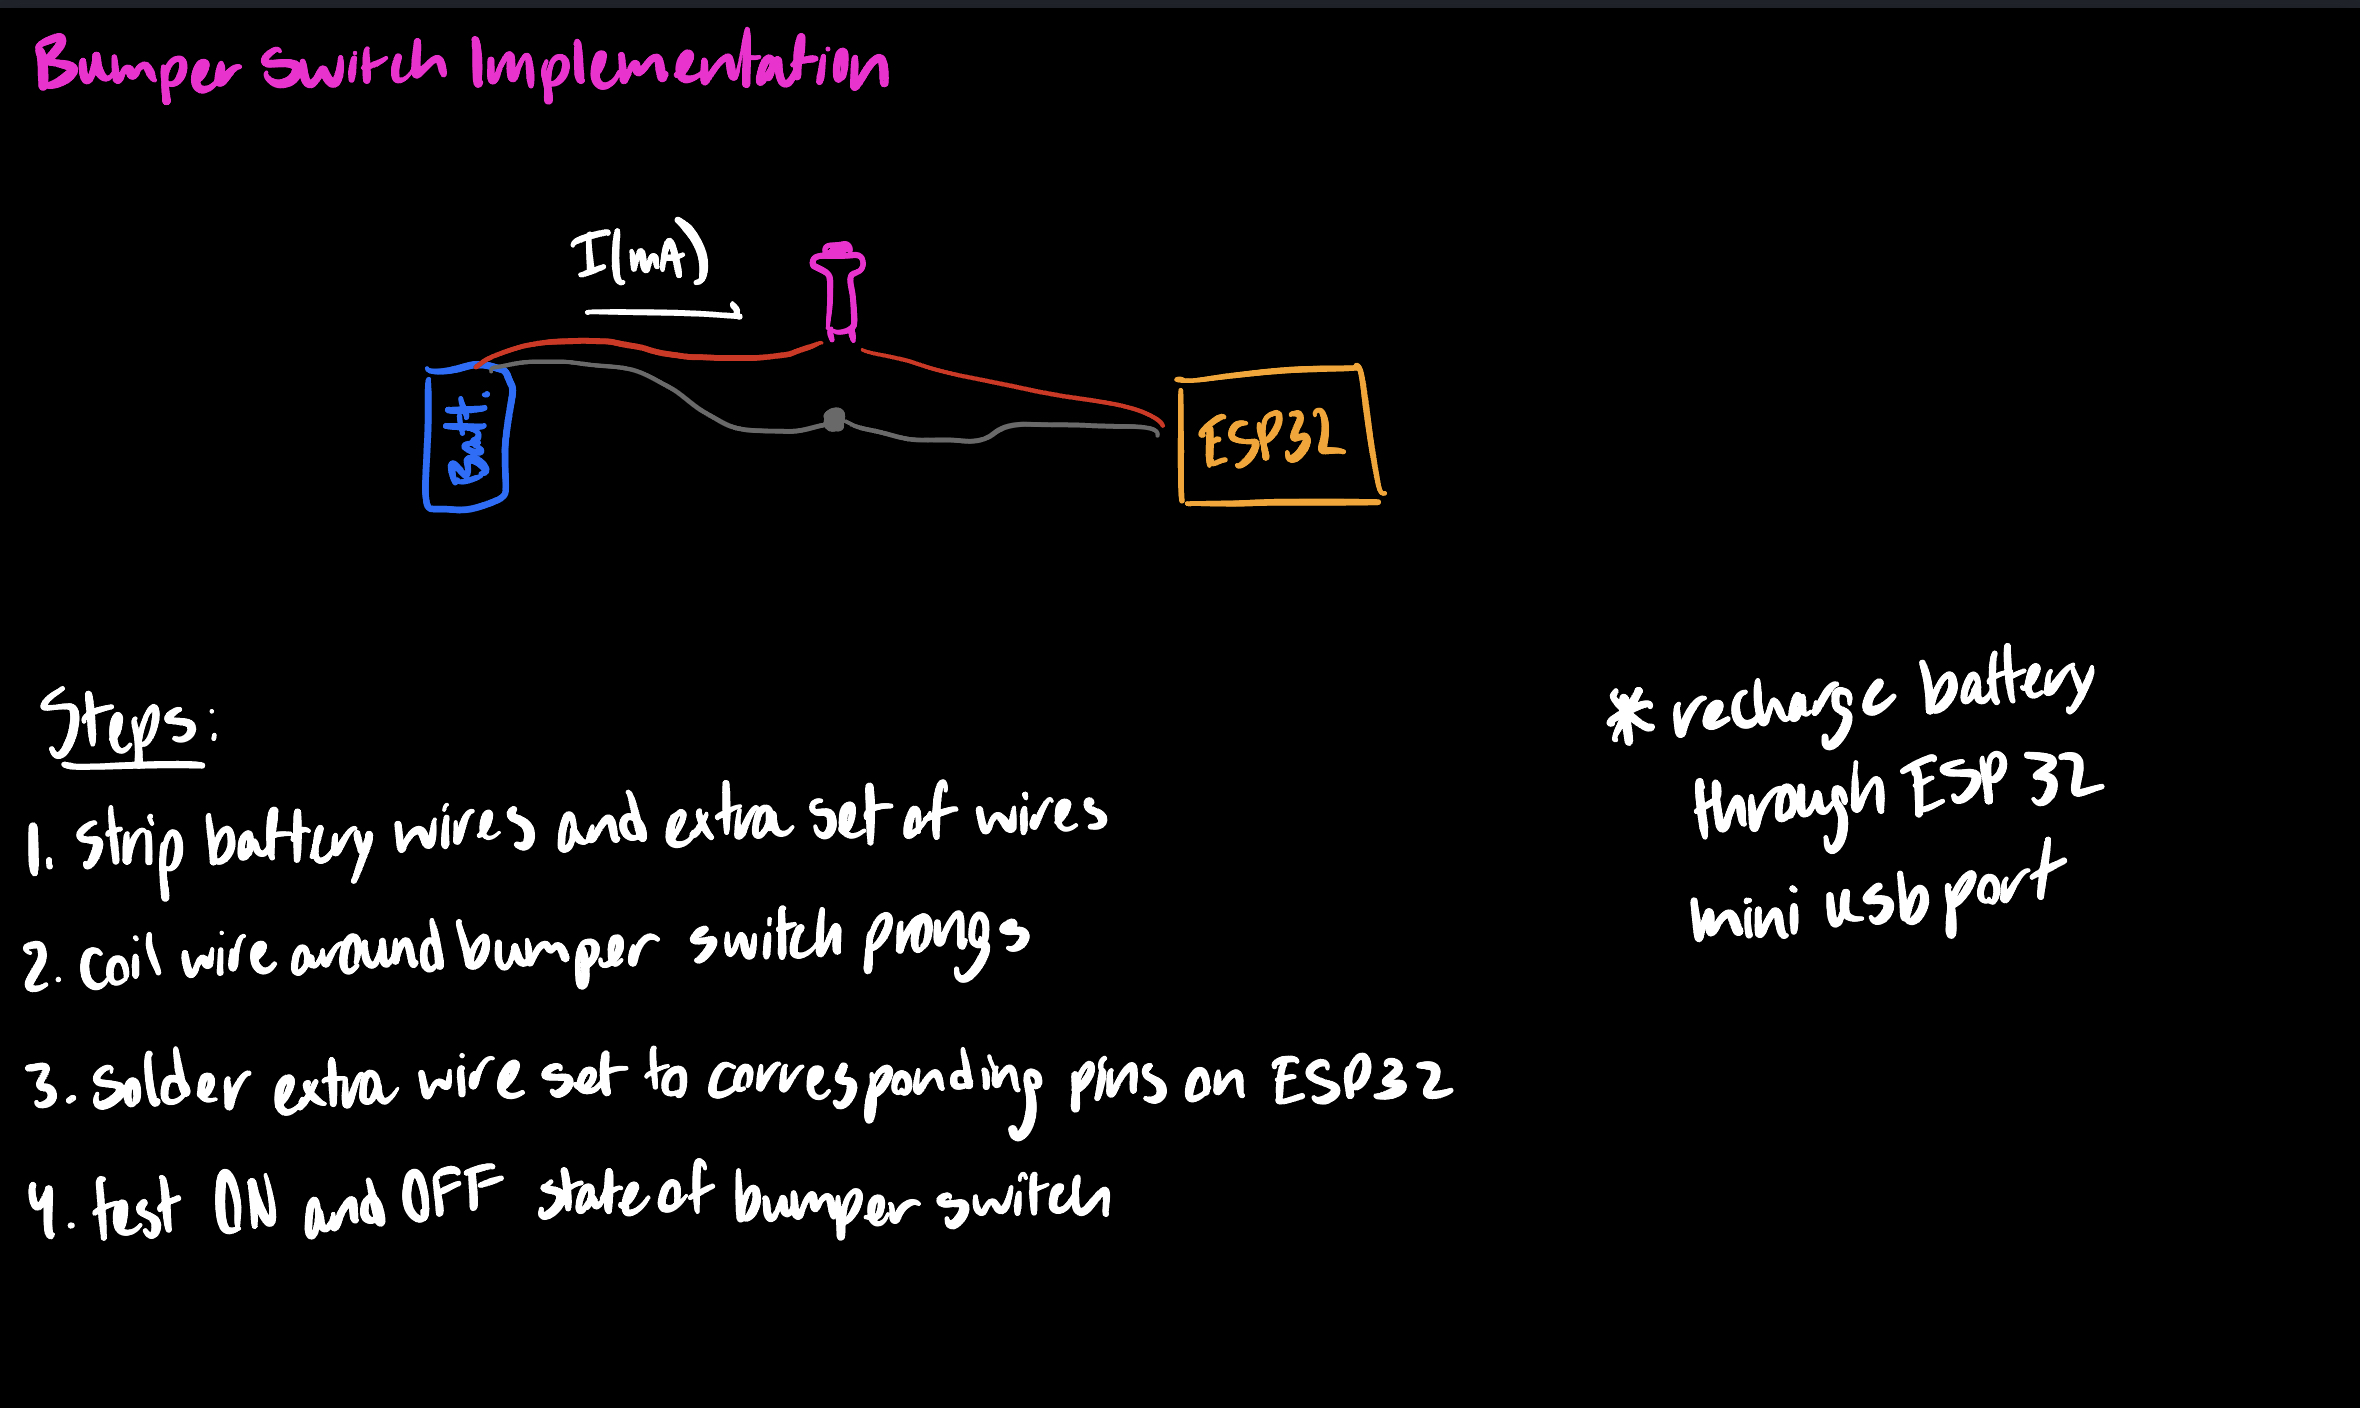 Bumper Switch Implementation
I(mA)
Batt.
ESP32
Steps:
1. strip battery wires and extra set of wires
2. coil wire around bumper switch prongs
3. solder extra wire set to corresponding pins on ESP32
4. test ON and OFF state of bumper switch
* recharge battery
through ESP 32
mini usb port